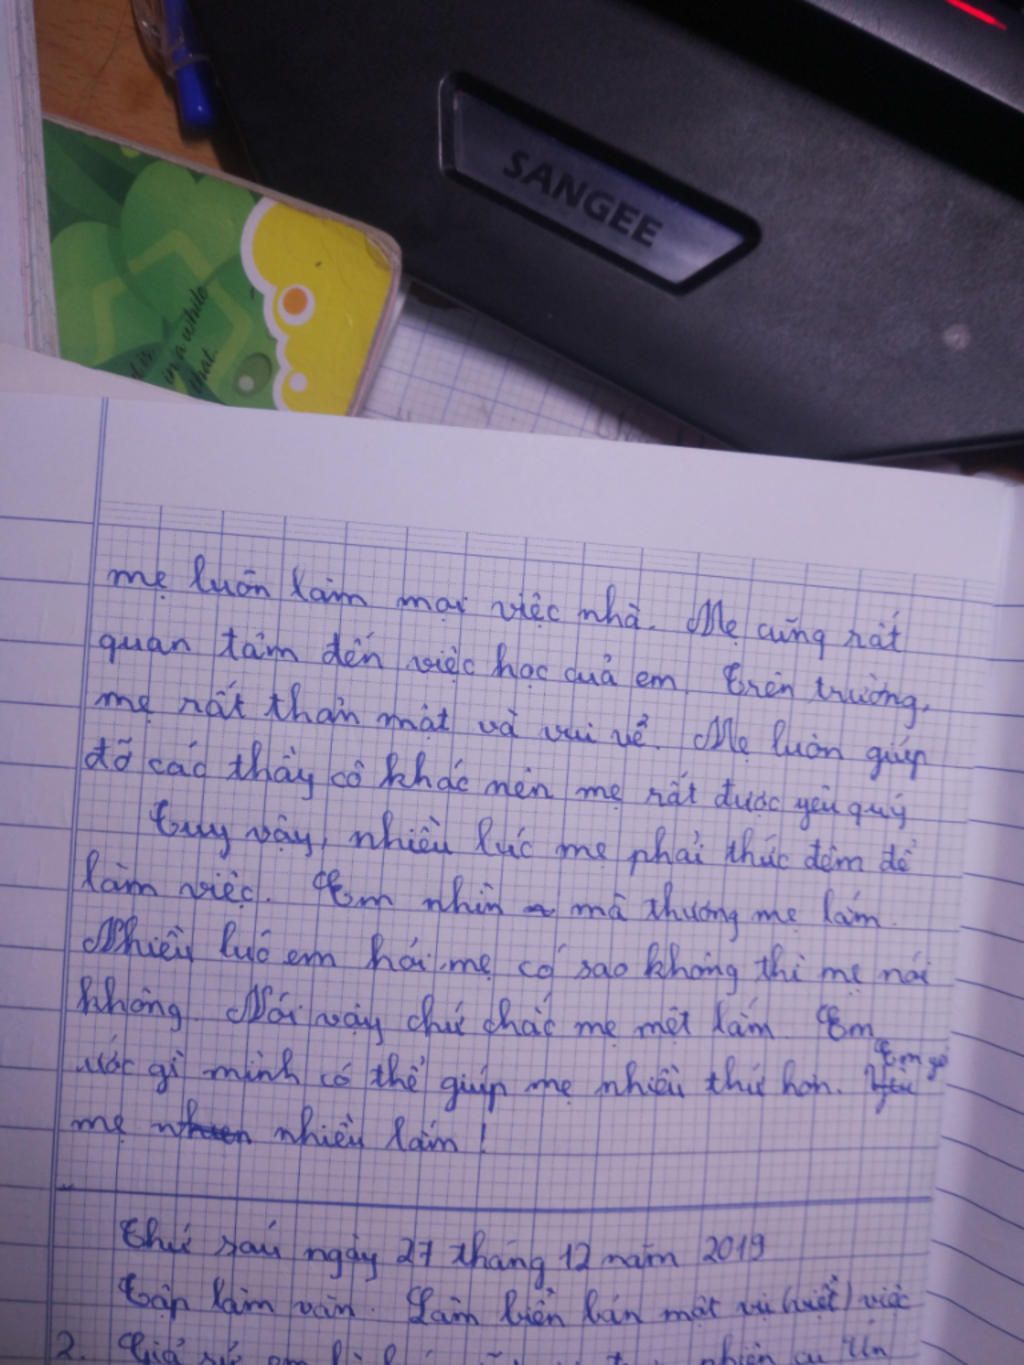 SANGEE
in a while
that.
mẹ luôn làm mọi việc nhà. Mẹ cũng rất
quan tâm đến việc học quả em. Trên trường,
mẹ rất thân mật và vui vẻ. Mẹ luôn giúp
đỡ các thầy cô khác nên mẹ rất được yêu quý
Tuy vậy, nhiều lúc mẹ phải thức đêm để
làm việc. Em nhìn mà thương mẹ lắm.
Nhiều lúc em hỏi mẹ có sao không thì mẹ nói
không. Nói vậy chứ chắc mẹ mệt lắm. Em
ước gì mình có thể giúp mẹ nhiều thứ hơn. Em
mẹ nhiều lắm!
Thứ sáu ngày 27 tháng 12 năm 2019
Tập làm văn. Làm biên bản một vụ (viết) việc
2. Giả sử em là